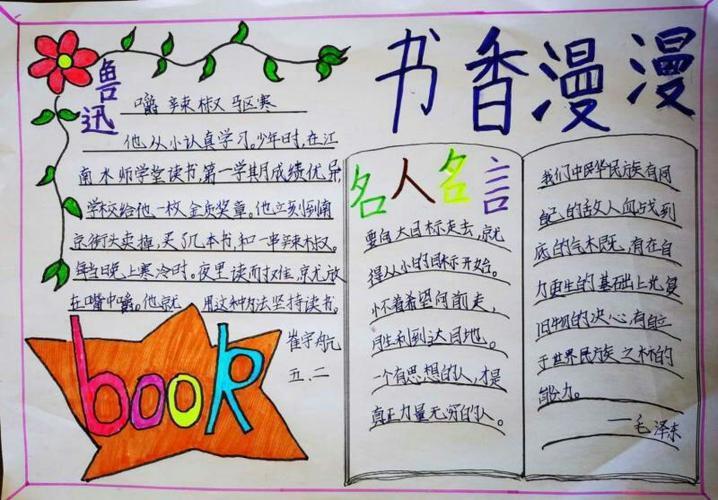 书香漫漫
鲁迅
嚼辣椒驱寒
他从小认真学习。少年时,在江
南水师学堂读书,第一学期成绩优异
学校给他一枚金质奖章。他立刻到南
京街头卖掉,买了几本书,和一串辣椒。
每当晚上寒冷时。夜里读而对住,京尤放
在嘴中嚼。他就用这种方法坚持读书。
崔宇
五.二
book
名人名言
要向大目标走去,就
得从小的目标开始。
怀着希望向前走,
胜利到达目地。
一个有思想的人,才是
真正力量无穷的人。
我们中华民族有同
自己的敌人血战到
底的气木既,有在自
力更生的基础上光复
旧物的决心,有自立
于世界民族之林的
能力。
——毛泽东